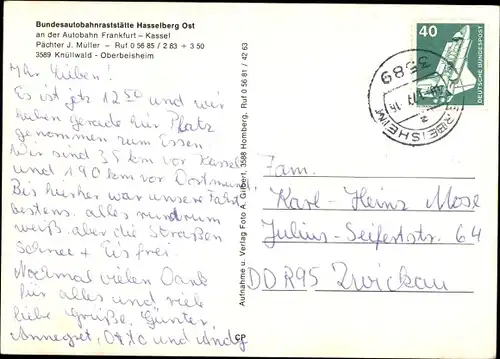 Bundesautobahnraststätte Hasselberg Ost
an der Autobahn Frankfurt – Kassel
Pächter J. Müller – Ruf 0 56 85 / 2 83 + 3 50
3589 Knüllwald - Oberbeisheim
Ihr Lieben!
Es ist jetz 12 50 und wir
haben gerade hier Platz
genommen zum Essen.
Wir sind 35 km vor Kassel
und 190 km vor Dortmund.
Bis hierher war unsere Fahrt
bestens. alles rundrum
weiß aber die Straßen
Schnee + Eis frei.
Nochmal vielen Dank
für alles und viele
liebe Grüße, Günter,
Annegret, und Andy
Aufnahme u. Verlag Foto A. Gilbert, 3588 Homberg, Ruf 0 56 81 / 42 63
CP
40
DEUTSCHE BUNDESPOST
3589
Fam.
Karl-Heinz Mose
Julius-Seifertstr. 64
DDR 95 Zwickau